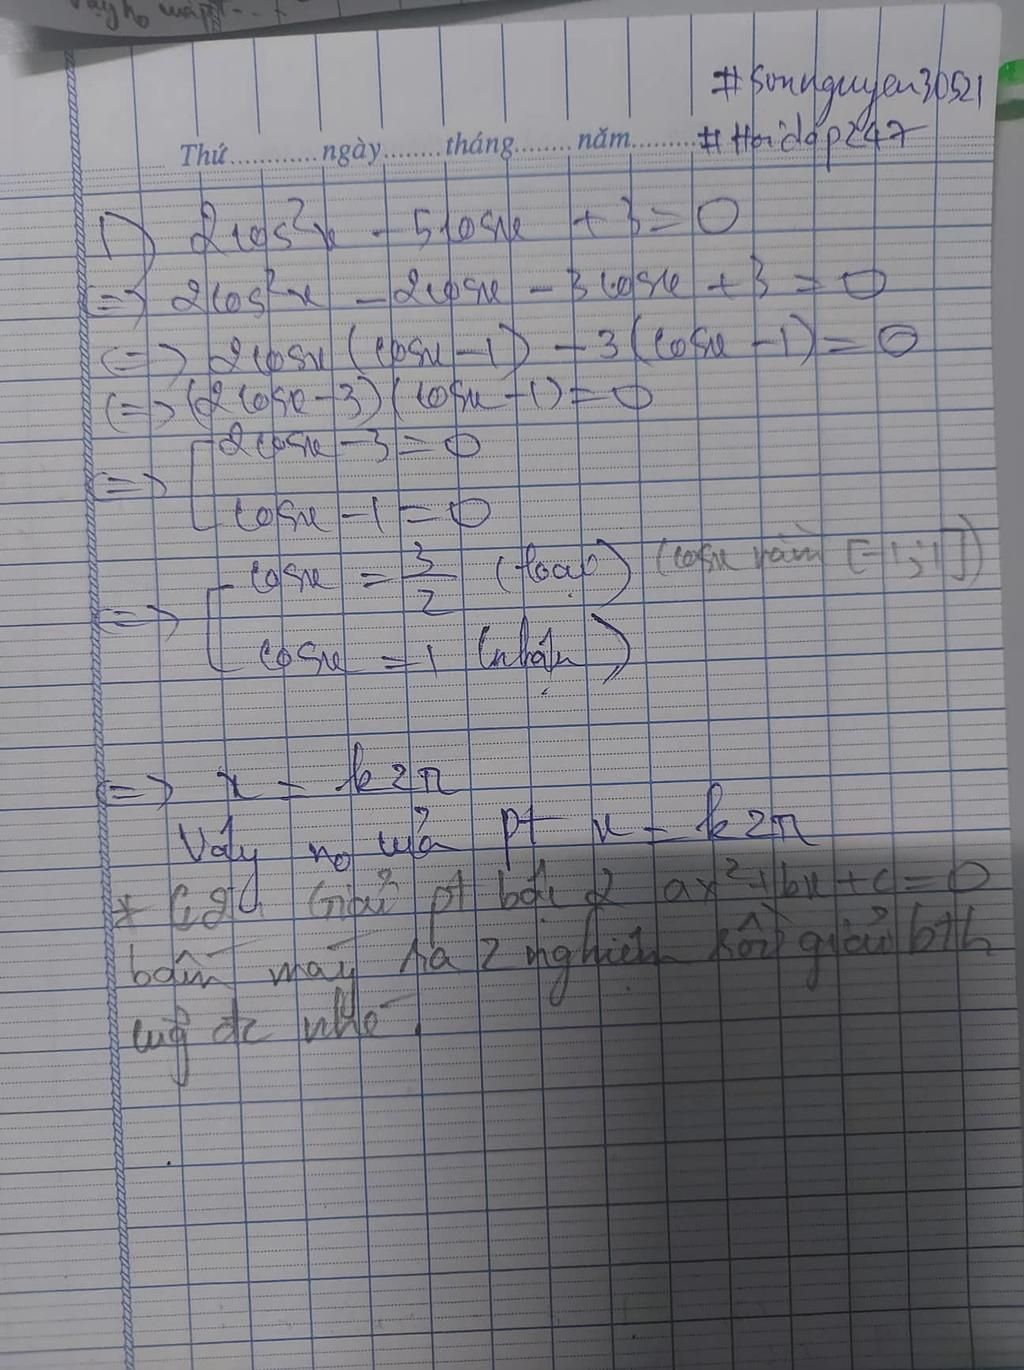 #Sonnguyen30521
Thứ............ngày........tháng........năm.......... #Hoidap247
1) 2cos²x - 5cosx + 3 = 0
=> 2cos²x - 2cosx - 3cosx + 3 = 0
<=> 2cosx(cosx - 1) - 3(cosx - 1) = 0
<=> (2cosx - 3)(cosx - 1) = 0
=> [ 2cosx - 3 = 0
cosx - 1 = 0
=> [ cosx = 3/2 (loại) (cosx [-1;1])
cosx = 1 (nhận)
=> x = k2π
Vậy no của pt x = k2π
* Giải pt bậc 2 ax² + bx + c = 0
bấm máy ra 2 nghiệm rồi giải bth
cũg đc nhé.